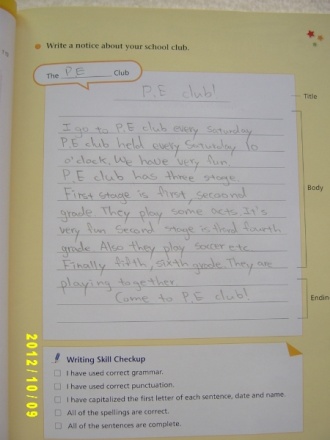 Write a notice about your school club.
The P.E Club
P.E club!
Title
I go to P.E club every Saturday
P.E club held every Saturday 10
o'clock. We have very fun.
P.E club has three stage.
First stage is first, secoond
grade. They play some acts. It's
very fun. Second stage is third fourth
grade. Also they play soccer etc
Finally fifth, sixth grade. They are
playing together.
Come to P.E club!
Body
Endin
Writing Skill Checkup
I have used correct grammar.
I have used correct punctuation.
I have capitalized the first letter of each sentence, date and name.
All of the spellings are correct.
All of the sentences are complete.
2012/10/09